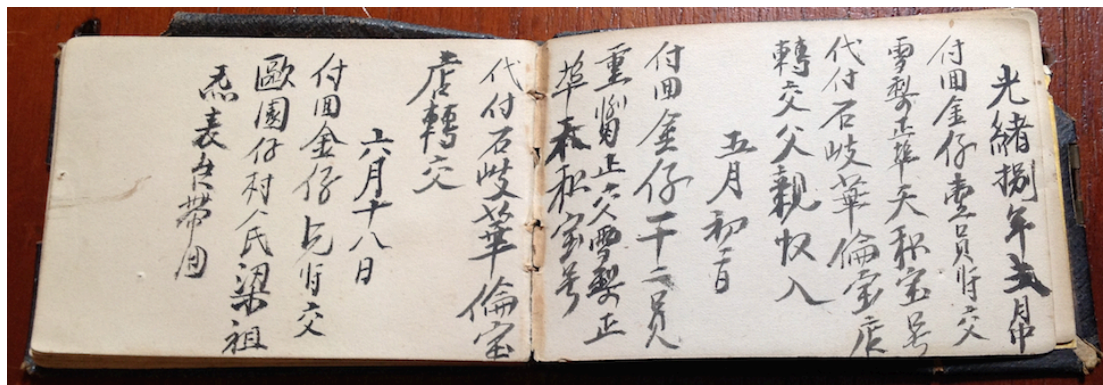 光緒捌年五月中
付回金仔壹員附交
雪梨正埠天和宝号
代付石岐華倫宝店
轉交父親收入
五月初二日
付回金仔十二員
重貿正交雪梨正
埠天和宝号
代付石岐華倫宝
店轉交
六月十八日
付回金仔附交
歐園仔村人氏梁祖
表弟帶回